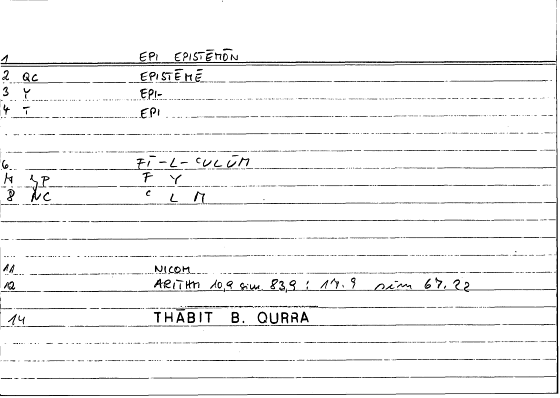 1 EPI EPISTĒMŌN
2 QC EPISTĒMĒ
3 Y EPI-
4 T EPI
6 FĪ-L-ʿULŪM
P F Y
8 NC ʿ L M
11 NICOM
12 ARITHM 10,9 sim 83,9 : 17.9 sim 67.22
14 THĀBIT B. QURRA